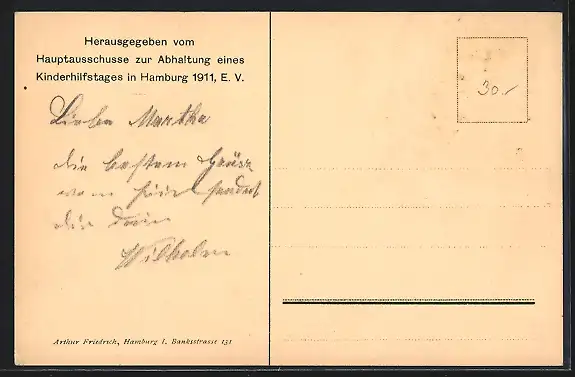 Herausgegeben vom
Hauptausschusse zur Abhaltung eines
Kinderhilfstages in Hamburg 1911, E. V.
30.-
Liebe Martha
die besten Grüsz
von hier sendet
dir dein
Wilhelm
Arthur Friedrich, Hamburg 1. Banksstrasse 131